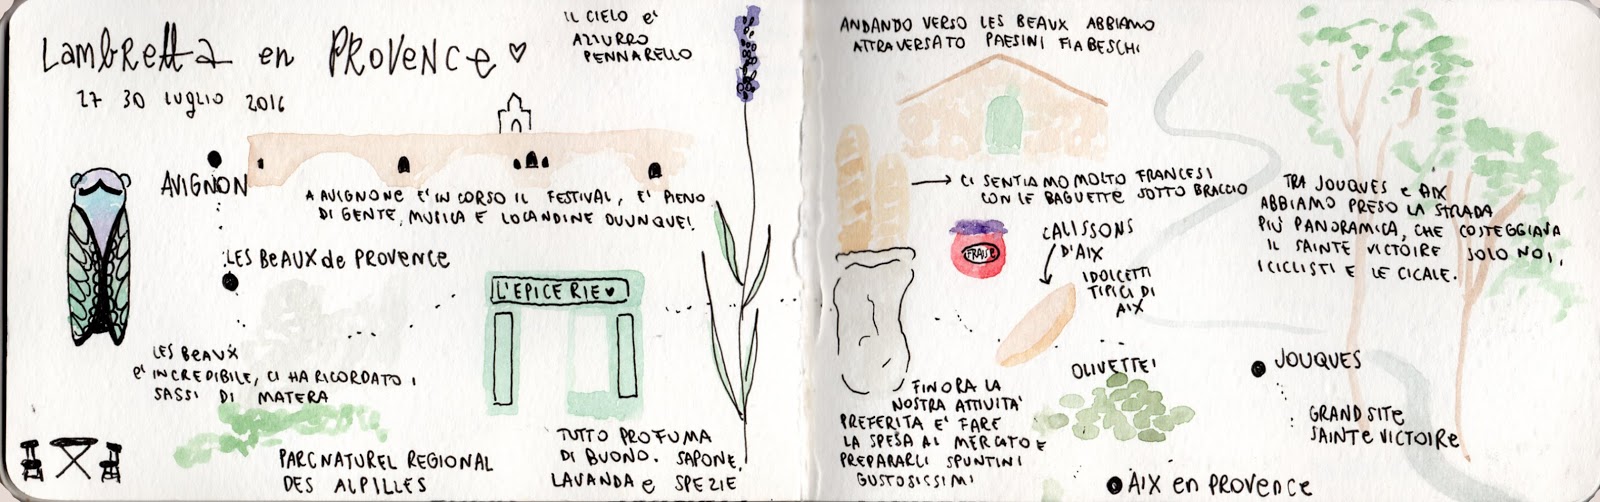 Lambretta en PROVENCE
27 30 LUGLIO 2016
IL CIELO E'
AZZURRO
PENNARELLO
AVIGNON
A AVIGNONE E' IN CORSO IL FESTIVAL, E' PIENO
DI GENTE, MUSICA E LOCANDINE OVUNQUE!
LES BEAUX de PROVENCE
L'EPICERIE
LES BEAUX
E' INCREDIBILE, CI HA RICORDATO I
SASSI DI MATERA
PARC NATUREL REGIONAL
DES ALPILLES
TUTTO PROFUMA
DI BUONO. SAPONE,
LAVANDA e SPEZIE
ANDANDO VERSO LES BEAUX ABBIAMO
ATTRAVERSATO PAESINI FIABESCHI
CI SENTIAMO MOLTO FRANCESI
CON LE BAGUETTE SOTTO BRACCIO
FRAISE
CALISSONS
D'AIX
I DOLCETTI
TIPICI DI
AIX
FINORA LA
NOSTRA ATTIVITA'
PREFERITA E' FARE
LA SPESA AL MERCATO E
PREPARARCI SPUNTINI
GUSTOSISSIMI
OLIVETTE!
TRA JOUQUES e AIX
ABBIAMO PRESO LA STRADA
PIÙ PANORAMICA, CHE COSTEGGIAVA
IL SAINTE VICTOIRE SOLO NOI,
I CICLISTI E LE CICALE.
JOUQUES
GRAND SITE
SAINTE VICTOIRE
AIX en PROVENCE